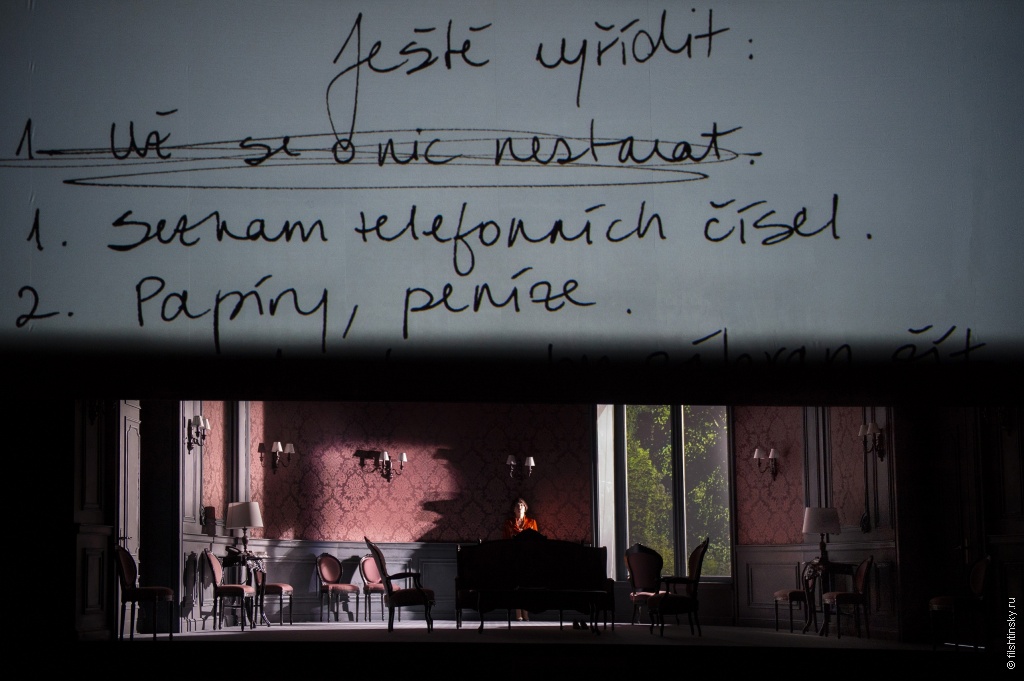 Ještě vyřídit:
1. Už se o nic nestarat.
1. Seznam telefonních čísel.
2. Papíry, peníze.
© filshtinsky.ru